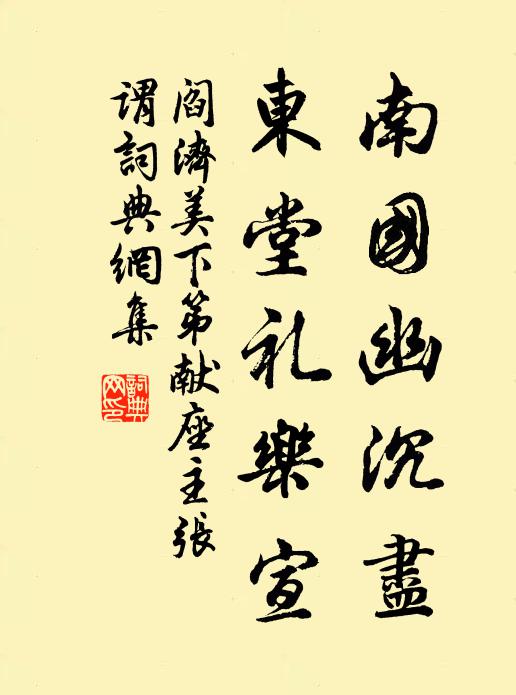 南國幽沉盡
東堂礼樂宣
閻濟美下第献座主張
謂詞典網集
詞典网印